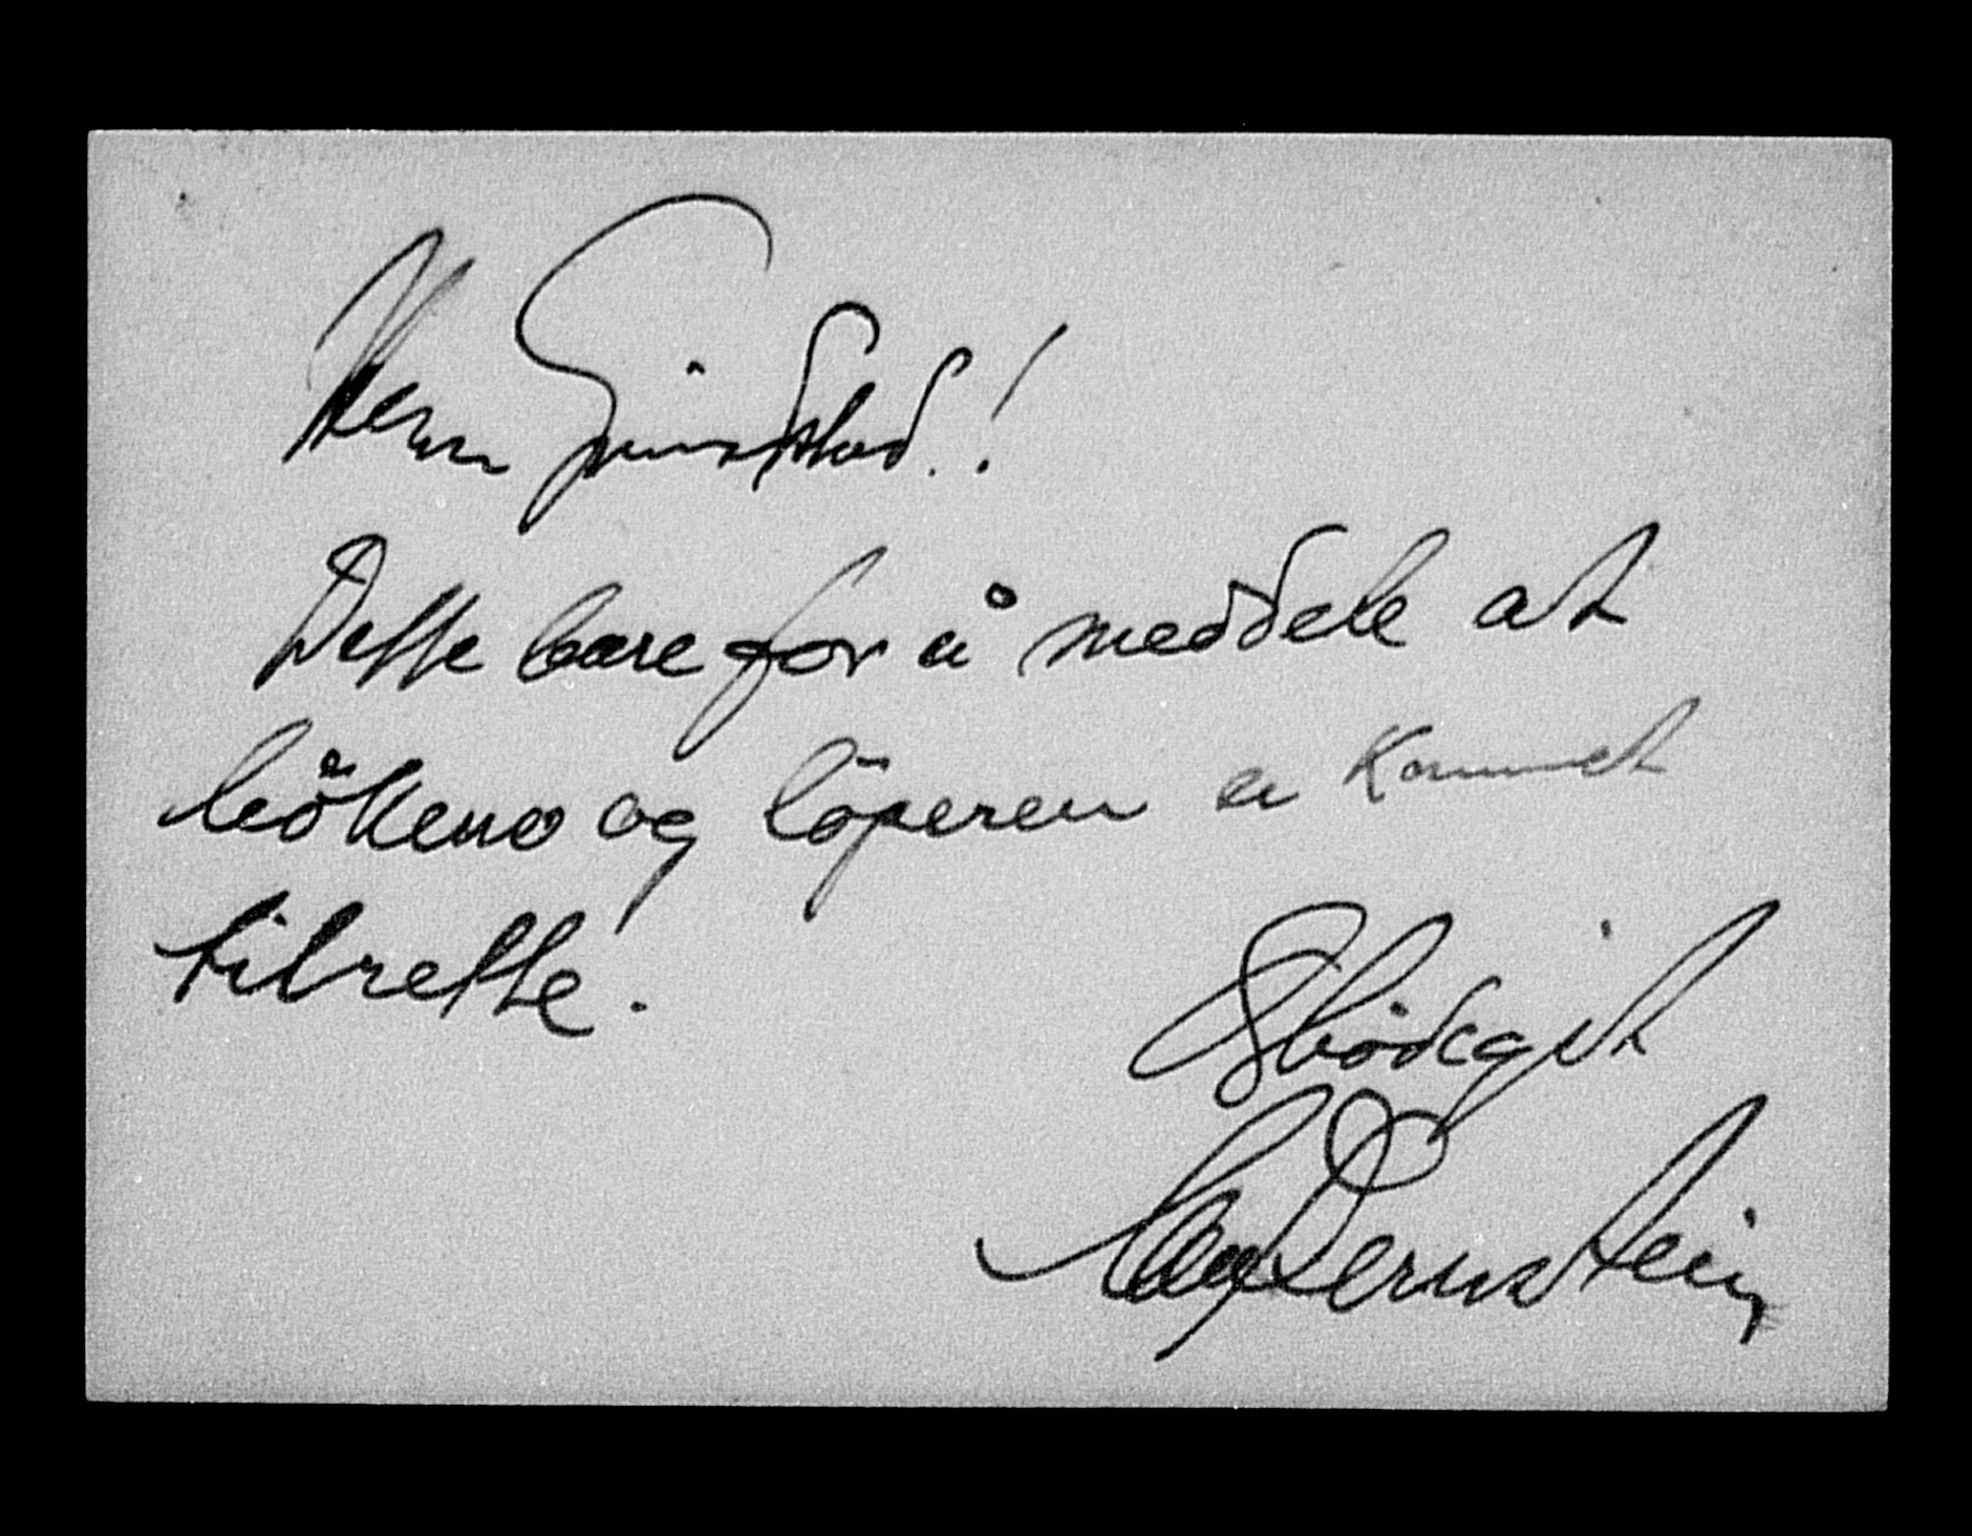 Herr Grindstad.!
Dette bare for å meddele at
bökene og löperen er kommet
tilrette.
Ærbödigst
Bernstein